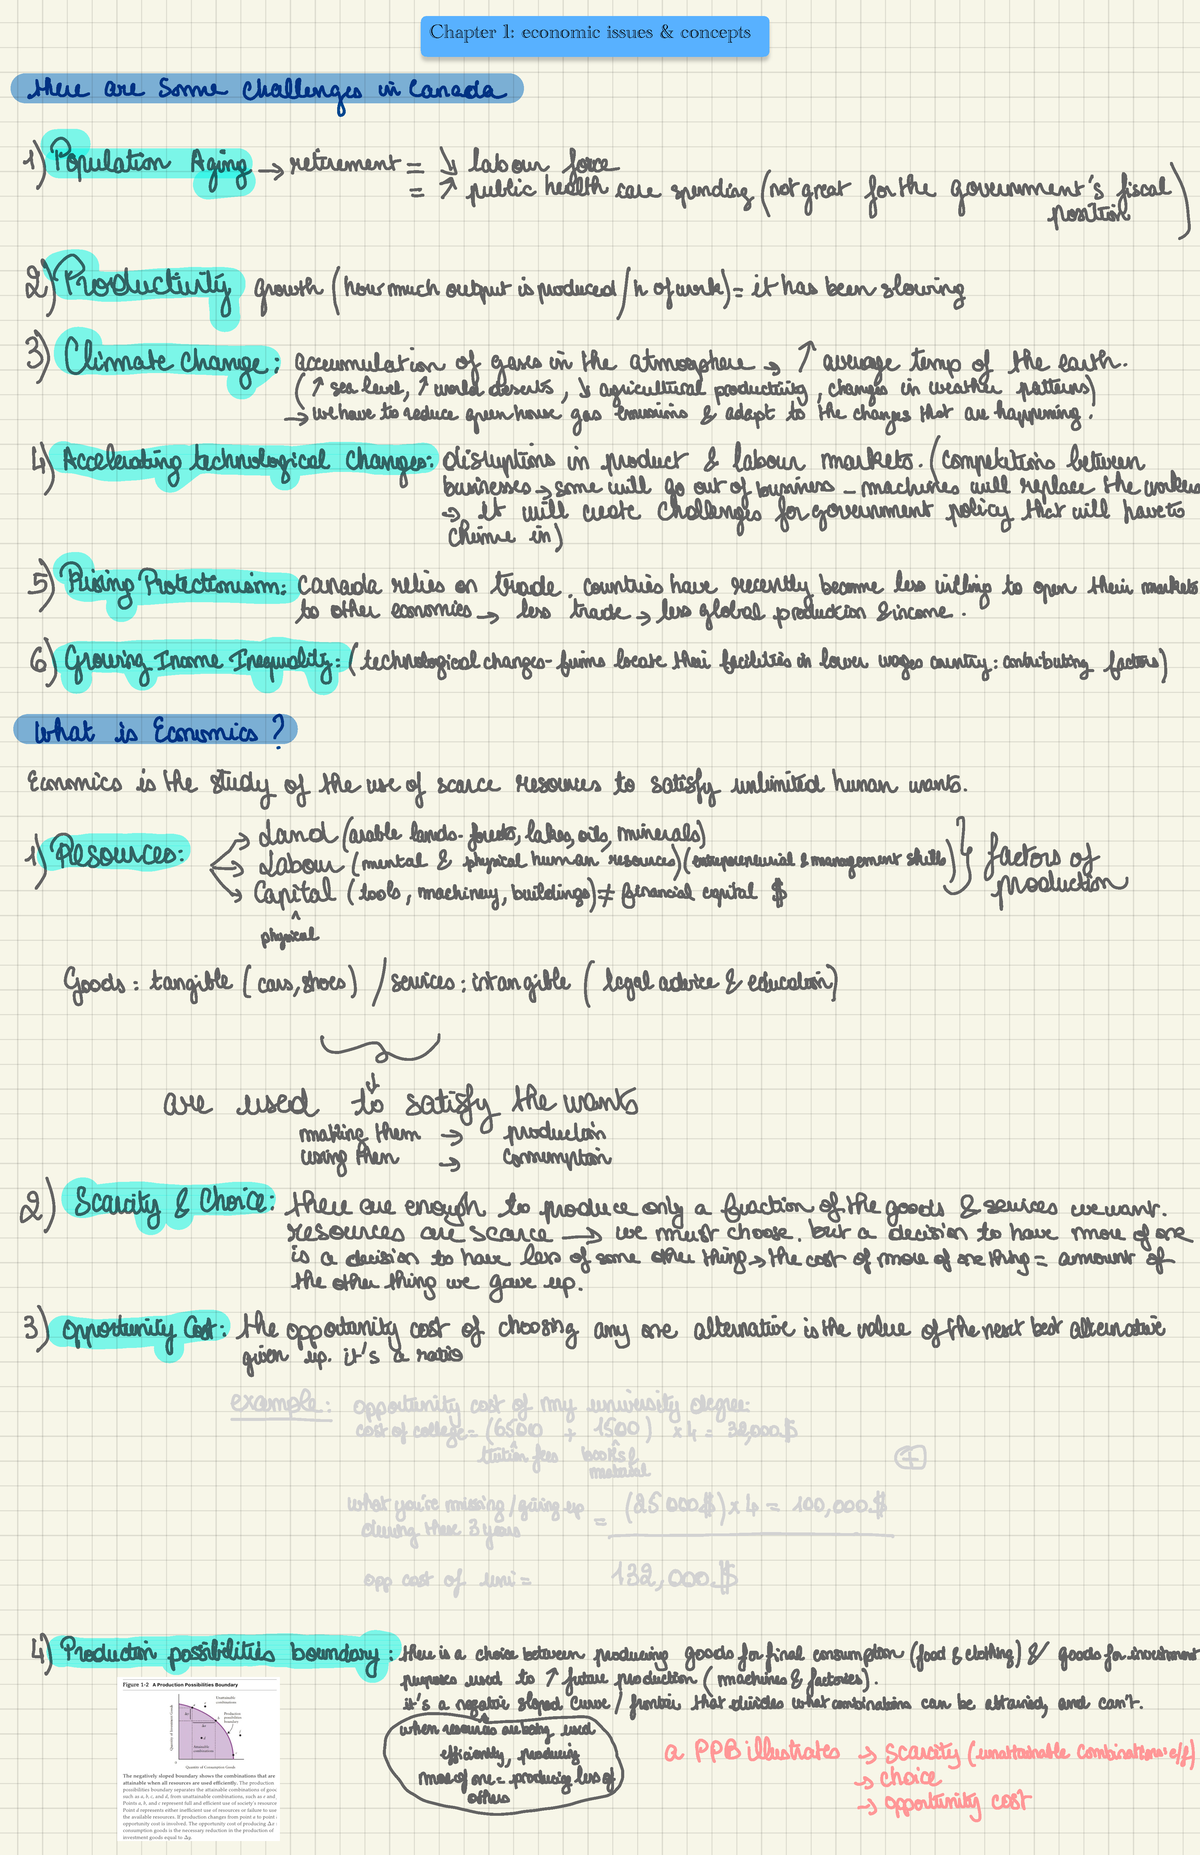 Chapter 1: economic issues & concepts
there are some challenges in Canada
1) Population Aging → retirement = ↘ labour force
= ↗ public health care spending (not great for the government's fiscal
position)
2) Productivity growth (how much output is produced / h of work) = it has been slowing
3) Climate Change: accumulation of gases in the atmosphere → ↑ average temp of the earth.
(↑ sea level, ↑ world deserts, ↓ agricultural productivity, changes in weather patterns)
→ we have to reduce green house gas emissions & adapt to the changes that are happening.
4) Accelerating technological changes: disruptions in product & labour markets. (competitions between
businesses → some will go out of business - machines will replace the workers
→ it will create challenges for government policy that will have to
chime in)
5) Rising Protectionism: Canada relies on trade. countries have recently become less willing to open their markets
to other economies → less trade → less global production & income.
6) Growing Income Inequality: (technological changes - firms locate their facilities in lower wages country: contributing factors)
What is Economics?
Economics is the study of the use of scarce resources to satisfy unlimited human wants.
1) Resources: → Land (arable lands - forests, lakes, oils, minerals)
→ Labour (mental & physical human resources) (entrepreneurial & management skills)
→ Capital (tools, machinery, buildings) ≠ financial capital $
} factors of
production
^
physical
Goods: tangible (cars, shoes) / services: intangible (legal advice & education)
are used to satisfy the wants
making them → production
using them → consumption
2) Scarcity & Choice: there are enough to produce only a fraction of the goods & services we want.
resources are scarce → we must choose. but a decision to have more of one
is a decision to have less of some other thing → the cost of more of one thing = amount of
the other thing we gave up.
3) Opportunity Cost: the opportunity cost of choosing any one alternative is the value of the next best alternative
given up. it's a ratio
example: opportunity cost of my university degree:
cost of college = (6500 + 1500) x 4 = 32,000$
tuition fees books &
material
+
what you're missing / giving up = (25 000$) x 4 = 100,000.$
during these 3 years
opp cost of uni = 132,000.$
4) Production possibilities boundary: there is a choice between producing goods for final consumption (food & clothing) & goods for investment
purposes used to ↑ future production (machines & factories).
it's a negative sloped curve / frontier that divides what combinations can be attained, and can't.
when resources are being used
efficiently, producing
more of one = producing less of
others
a PPB illustrates → scarcity (unattainable combinations: e/f)
→ choice
→ opportunity cost
Figure 1-2 A Production Possibilities Boundary
Unattainable
combinations
Production
possibilities
boundary
Attainable
combinations
Quantity of Investment Goods
Quantity of Consumption Goods
The negatively sloped boundary shows the combinations that are
attainable when all resources are used efficiently. The production
possibilities boundary separates the attainable combinations of goods,
such as a, b, c, and d, from unattainable combinations, such as e and
Points a, b, and c represent full and efficient use of society's resource
Point d represents either inefficient use of resources or failure to use
the available resources. If production changes from point a to point
opportunity cost is involved. The opportunity cost of producing Δc
consumption goods is the necessary reduction in the production of
investment goods equal to Δg.